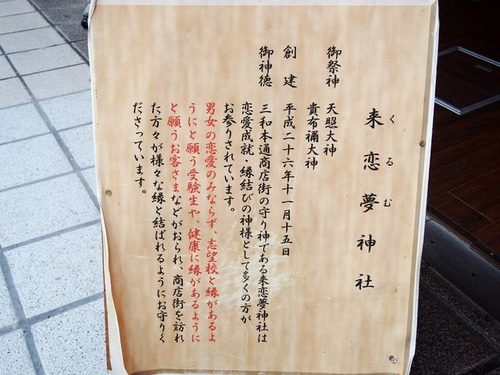 来恋夢神社
くるむ
御祭神 天照大神
貴布禰大神
創建 平成二十六年十一月十五日
御神徳 三和本通商店街の守り神である来恋夢神社は
恋愛成就・縁結びの神様として多くの方が
お参りされています。
男女の恋愛のみならず、志望校と縁があるよ
うにと願う受験生や、健康に縁があるように
と願うお客さまなどがおられ、商店街を訪れ
た方々が様々な縁と結ばれるようにお守りく
ださっています。